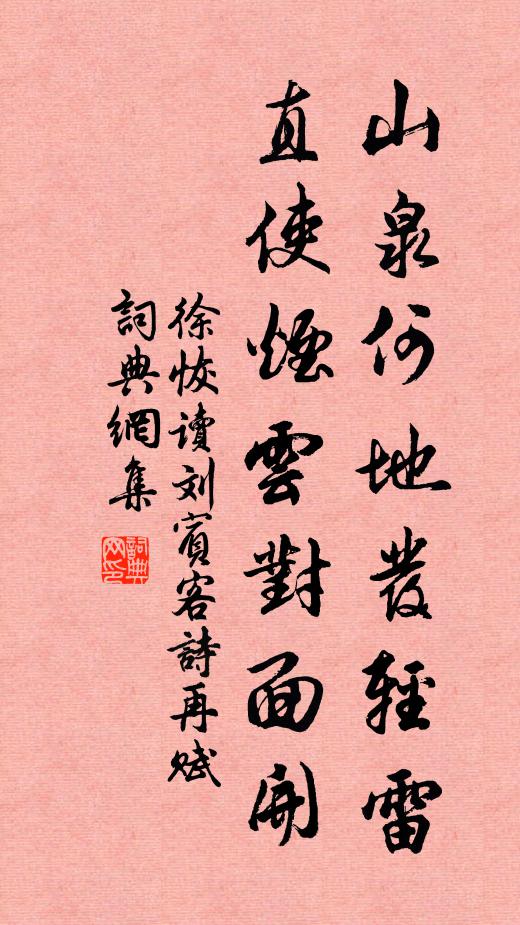 山泉何地發輕雷
直使煙雲對面開
徐恢读刘賓客詩再赋
詞典網集
詞典网印